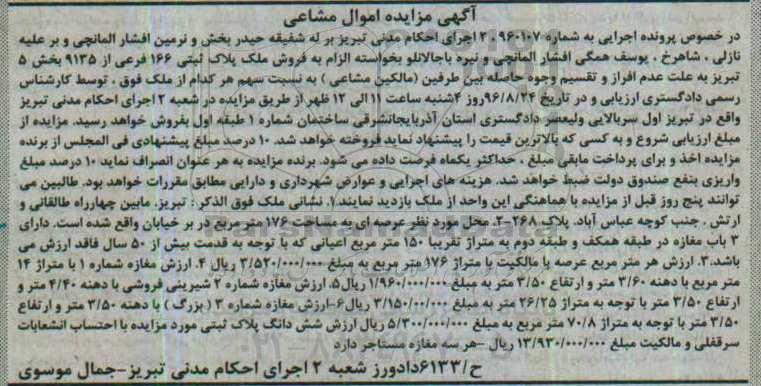 آگهی مزایده اموال مشاعی
در خصوص پرونده اجرایی به شماره ۲۰۹۶۰۱۰۷ اجرای احکام مدنی تبریز بر له شفیقه حیدر بخش و نرمین افشار المانجی و بر علیه
نازلی ، شاهرخ ، یوسف همگی افشار المانجی و نیره باجالانلو بخواسته الزام به فروش ملک پلاک ثبتی ۱۶۶ فرعی از ۹۱۳۵ بخش ۵
تبریز به علت عدم افراز و تقسیم وجوه حاصله بین طرفین (مالکین مشاعی ) به نسبت سهم هر کدام از ملک فوق ، توسط کارشناس
رسمی دادگستری ارزیابی و در تاریخ ۹۶/۸/۲۴روز ۴شنبه ساعت ۱۱ الی ۱۲ ظهر از طریق مزایده در شعبه ۲ اجرای احکام مدنی تبریز
واقع در تبریز اول سربالایی ولیعصر دادگستری استان آذربایجانشرقی ساختمان شماره ۱ طبقه اول بفروش خواهد رسید. مزایده از
مبلغ ارزیابی شروع و به کسی که بالاترین قیمت را پیشنهاد نماید فروخته خواهد شد. ۱۰ درصد مبلغ پیشنهادی فی المجلس از برنده
مزایده اخذ و برای پرداخت مابقی مبلغ ، حداکثر یکماه فرصت داده می شود. برنده مزایده به هر عنوان انصراف نماید ۱۰ درصد مبلغ
واریزی بنفع صندوق دولت ضبط خواهد شد. هزینه های اجرایی و عوارض شهرداری و دارایی مطابق مقررات خواهد بود. طالبین می
توانند پنج روز قبل از مزایده با هماهنگی این واحد از ملک بازدید نمایند.۱. نشانی ملک فوق الذکر : تبریز، مابین چهارراه طالقانی و
ارتش ، جنب کوچه عباس آباد. پلاک ۲۶۸-۲. محل مورد نظر عرصه ای به مساحت ۱۷۶ متر مربع در بر خیابان واقع شده است. دارای
۳ باب مغازه در طبقه همکف و طبقه دوم به متراژ تقریبا ۱۵۰ متر مربع اعیانی که با توجه به قدمت بیش از ۵۰ سال فاقد ارزش می
باشد.۳. ارزش هر متر مربع عرصه با مالکیت با متراژ ۱۷۶ متر مربع به مبلغ ۳/۵۲۰/۰۰۰/۰۰۰ ریال ۴. ارزش مغازه شماره ۱ با متراژ ۱۴
متر مربع با دهنه ۳/۶۰ متر و ارتفاع ۳/۵۰ متر به مبلغ ۱/۹۶۰/۰۰۰/۰۰۰ ریال ۵. ارزش مغازه شماره ۲ شیرینی فروشی با دهنه ۴/۴۰ متر و
ارتفاع ۳/۵۰ متر با توجه به متراژ ۲۶/۲۵ متر به مبلغ ۳/۱۵۰/۰۰۰/۰۰۰ ریال ۶-ارزش مغازه شماره ۳ (بزرگ ) با دهنه ۳/۵۰ متر و ارتفاع
۳/۵۰ متر با توجه به متراژ ۷۰/۸ متر مربع به مبلغ ۵/۳۰۰/۰۰۰/۰۰۰ ریال ارزش شش دانگ پلاک ثبتی مورد مزایده با احتساب انشعابات
سرقفلی و مالکیت مبلغ ۱۳/۹۳۰/۰۰۰/۰۰۰ ریال –هر سه مغازه مستاجر دارد
ح/۶۱۳۳دادورز شعبه ۲ اجرای احکام مدنی تبریز-جمال موسوی